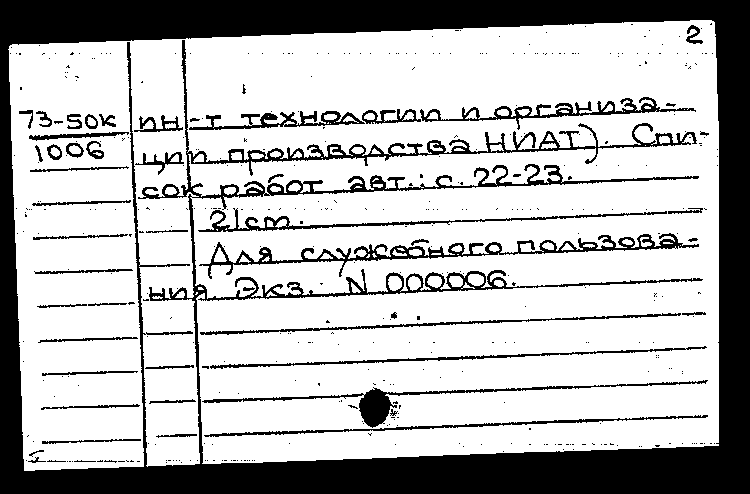 2
73-50к ин-т технологии и организа-
1006 ции производства НИАТ). Спи-
сок работ авт.: с. 22-23.
21 cm.
Для служебного пользова-
ния. Экз. N 000006.